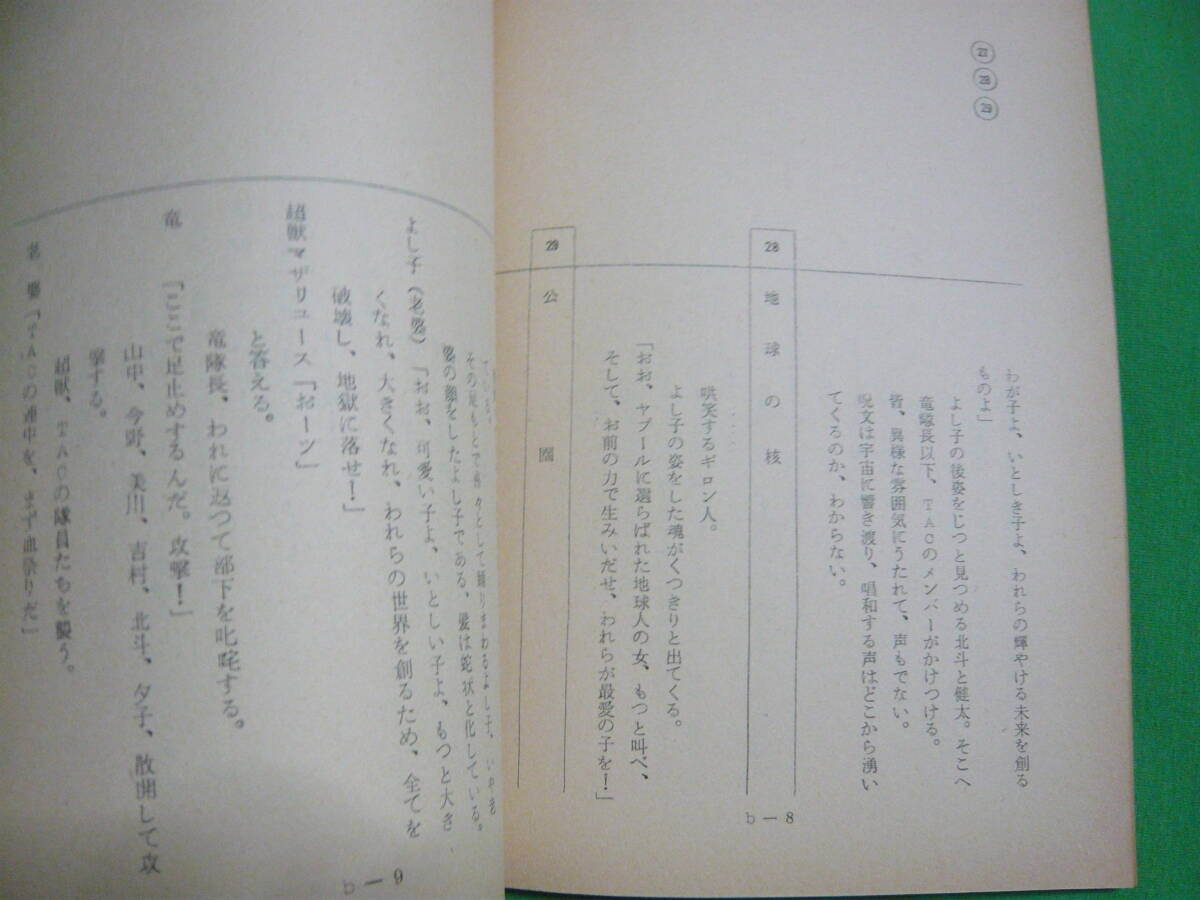 27
28
29
わが子よ、いとしき子よ、われらの輝やける未来を創る
ものよ」
よし子の後姿をじつと見つめる北斗と健太。そこへ
竜隊長以下、TACのメンバーがかけつける。
皆、異様な雰囲気にうたれて、声もでない。
呪文は宇宙に響き渡り、唱和する声はどこから湧い
てくるのか、わからない。
28 地球の核
哄笑するギロン人。
よし子の姿をした魂がくつきりと出てくる。
「おお、ヤプールに選らばれた地球人の女、もつと叫べ、
そして、お前の力で生みいだせ、われらが最愛の子を!」
29 公園
b-8
ている。
その足もとで舞々として踊りまわるよし子、いや老
婆の顔をしたよし子である、髪は蛇状と化している。
よし子(老婆)「おお、可愛い子よ、いとしい子よ、もつと大き
くなれ、大きくなれ、われらの世界を創るため、全てを
破壊し、地獄に落せ!」
超獣マザリュース「おーツ」
と答える。
竜隊長、われに返つて部下を叱咤する。
竜 「ここで足止めするんだ。攻撃!」
山中、今野、美川、吉村、北斗、夕子、散開して攻
撃する。
超獣、TACの隊員たちを襲う。
老婆「TACの連中を、まず血祭りだ」
b-9